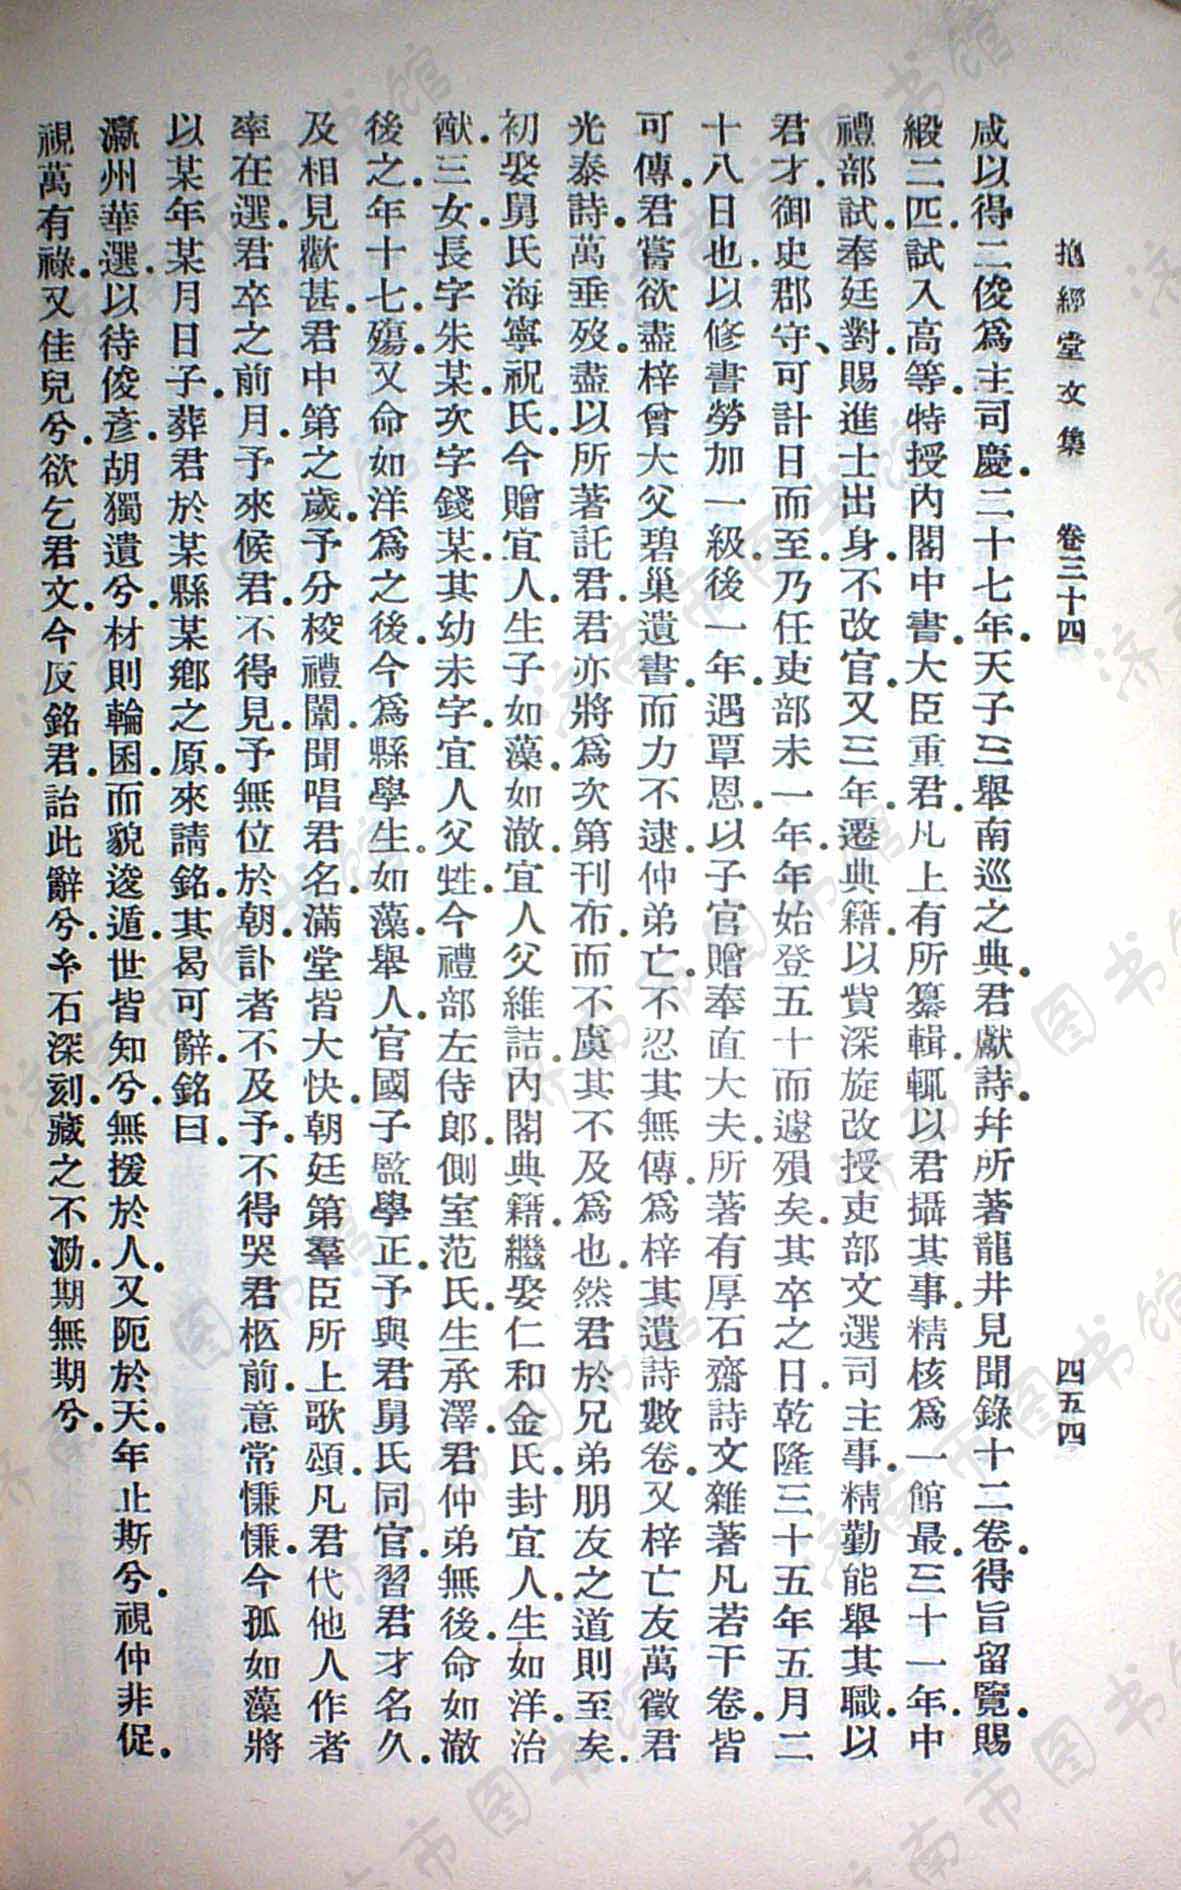 抱經堂文集　卷三十四　四五四
咸以得二俊爲主司慶.二十七年.天子三舉南巡之典.君獻詩.幷所著龍井見聞錄十二卷.得旨留覽.賜
緞二匹.試入高等.特授內閣中書.大臣重君.凡上有所纂輯.輒以君攝其事.精核爲一館最.三十一年.中
禮部試.奉廷對.賜進士出身.不改官.又三年.遷典籍.以貲深旋改授吏部文選司主事.精勤能舉其職.以
君才.御史郡守、可計日而至.乃任吏部未一年.年始登五十而遽殞矣.其卒之日.乾隆三十五年五月二
十八日也.以修書勞加一級.後一年.遇覃恩.以子官贈奉直大夫.所著有厚石齋詩文雜著凡若干卷.皆
可傳.君嘗欲盡梓曾大父碧巢遺書.而力不逮.仲弟亡.不忍其無傳.爲梓其遺詩數卷.又梓亡友萬徵君
光泰詩.萬垂歿.盡以所著託君.君亦將爲次第刊布.而不虞其不及爲也.然君於兄弟朋友之道則至矣.
初娶舅氏海寧祝氏.今贈宜人.生子如藻.如澈.宜人父維誥.內閣典籍.繼娶仁和金氏.封宜人.生如洋.治
猷.三女.長字朱某.次字錢某.其幼未字.宜人父甡.今禮部左侍郎.側室范氏.生承澤.君仲弟無後.命如澈
後之.年十七.殤.又命如洋爲之後.今爲縣學生.如藻.舉人.官國子監學正.予與君舅氏同官.習君才名久.
及相見歡甚.君中第之歲.予分校禮闈.聞唱君名.滿堂皆大快.朝廷第羣臣所上歌頌.凡君代他人作者
率在選.君卒之前月.予來候君.不得見.予無位於朝.訃者不及予.不得哭君柩前.意常慊慊.今孤如藻將
以某年某月日子.葬君於某縣某鄉之原.來請銘.其曷可辭.銘曰.
瀛州華選.以待俊彥.胡獨遺兮.材則輪囷.而貌逡遁.世皆知兮.無援於人.又阨於天.年止斯兮.視仲非促.
視萬有祿.又佳兒兮.欲乞君文.今反銘君.詒此辭兮.㐅石深刻.藏之不泐.期無期兮.